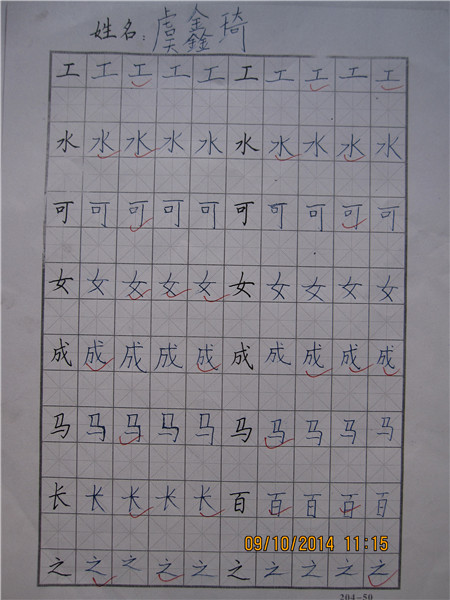 姓名：虞鑫琦
工工工工工工工工工工
水水水水水水水水水水
可可可可可可可可可可
女女女女女女女女女女
成成成成成成成成成成
马马马马马马马马马马
长长长长长百百百百百
之之之之之之之之之之
09/10/2014 11:15
204-50